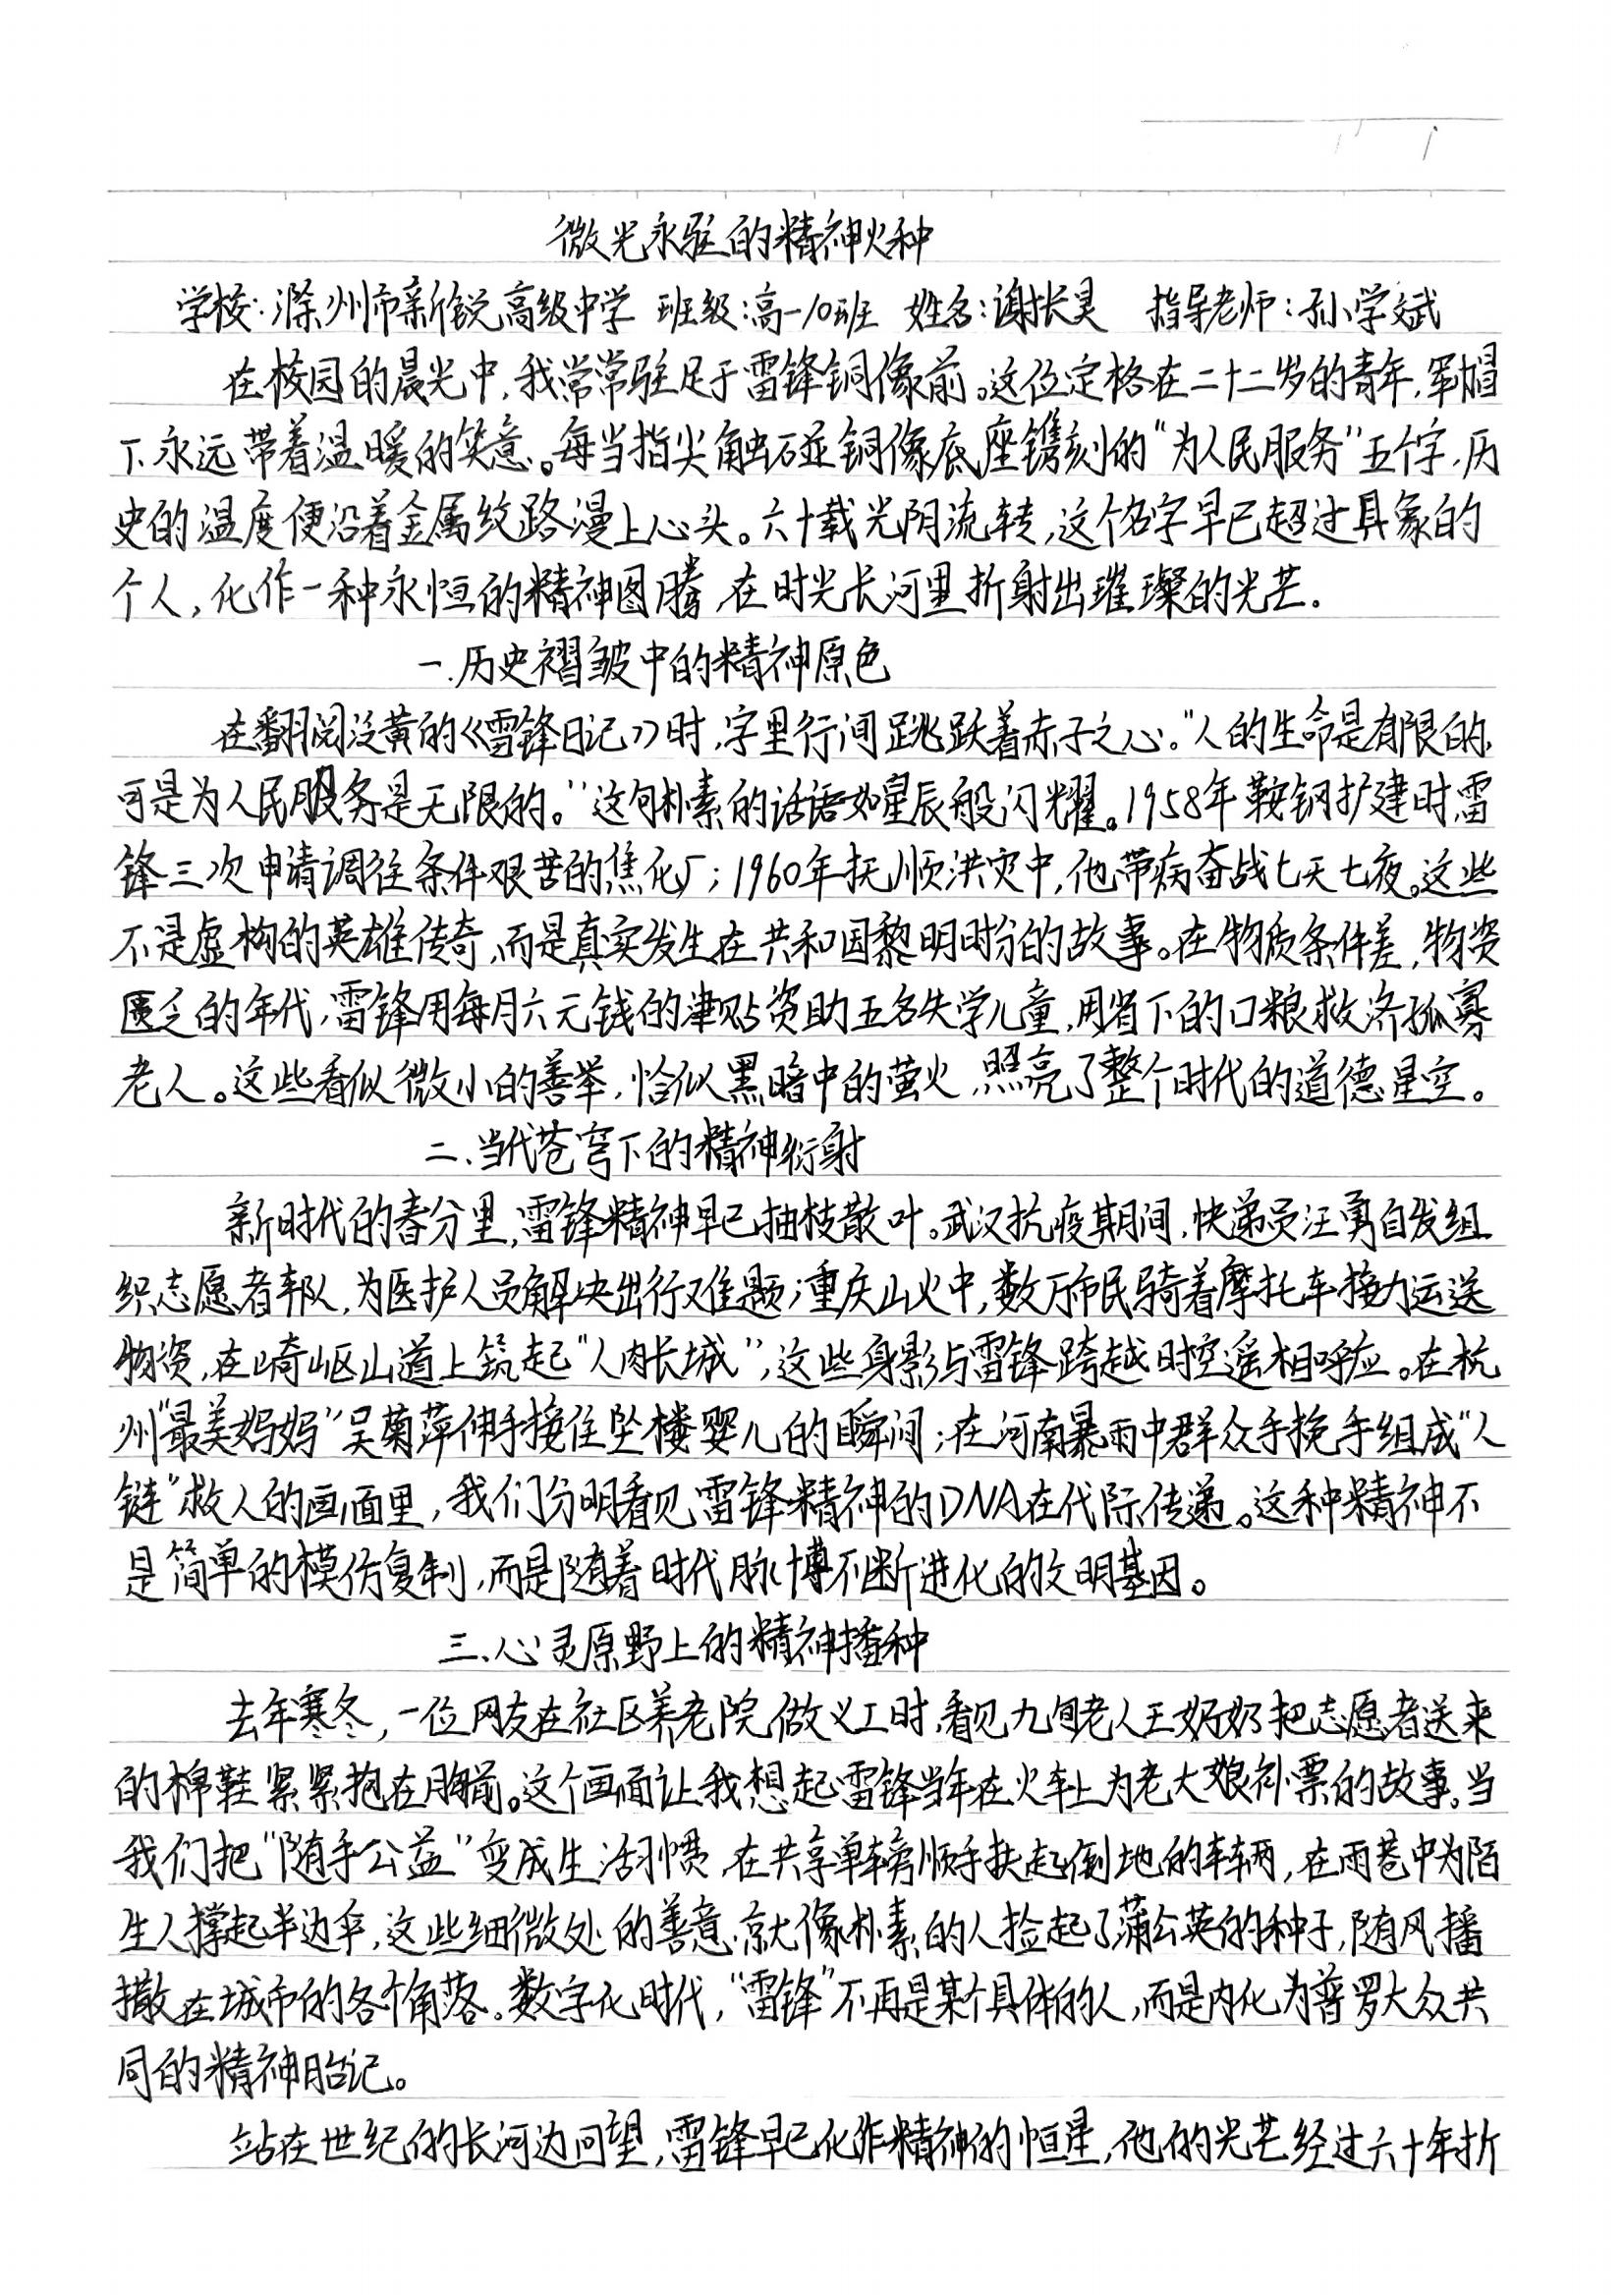 微光永驻的精神火种
学校:滁州市新锐高级中学 班级:高一10班 姓名:谢长昊 指导老师:孙学斌
在校园的晨光中,我常常驻足于雷锋铜像前。这位定格在二十二岁的青年,军帽
下永远带着温暖的笑意。每当指尖触碰铜像底座镌刻的“为人民服务”五个字,历
史的温度便沿着金属纹路漫上心头。六十载光阴流转,这个名字早已超过具象的
个人,化作一种永恒的精神图腾,在时光长河里折射出璀璨的光芒.
一.历史褶皱中的精神原色
在翻阅泛黄的《雷锋日记》时,字里行间跳跃着赤子之心。“人的生命是有限的,
可是为人民服务是无限的。”这句朴素的话语如星辰般闪耀。1958年鞍钢扩建时,雷
锋三次申请调往条件艰苦的焦化厂;1960年抚顺洪灾中,他带病奋战七天七夜。这些
不是虚构的英雄传奇,而是真实发生在共和国黎明时分的故事。在物质条件差,物资
匮乏的年代,雷锋用每月六元钱的津贴资助五名失学儿童,用省下的口粮救济孤寡
老人。这些看似微小的善举,恰似黑暗中的萤火,照亮了整个时代的道德星空。
二.当代苍穹下的精神衍射
新时代的春分里,雷锋精神早已抽枝散叶。武汉抗疫期间,快递员汪勇自发组
织志愿者车队,为医护人员解决出行难题;重庆山火中,数万市民骑着摩托车接力运送
物资,在崎岖山道上筑起“人肉长城”,这些身影与雷锋跨越时空遥相呼应。在杭
州“最美妈妈”吴菊萍伸手接住坠楼婴儿的瞬间;在河南暴雨中群众手挽手组成“人
链”救人的画面里,我们分明看见雷锋精神的DNA在代际传递。这种精神不
是简单的模仿复制,而是随着时代脉博不断进化的文明基因。
三.心灵原野上的精神播种
去年寒冬,一位网友在社区养老院做义工时,看见九旬老人王奶奶把志愿者送来
的棉鞋紧紧抱在胸前。这个画面让我想起雷锋当年在火车上为老大娘补票的故事。当
我们把“随手公益”变成生活习惯,在共享单车旁顺手扶起倒地的车辆,在雨巷中为陌
生人撑起半边伞,这些细微处的善意.就像朴素的人捡起了蒲公英的种子,随风播
撒在城市的各个角落。数字化时代,“雷锋”不再是某个具体的人,而是内化为普罗大众共
同的精神胎记。
站在世纪的长河边回望,雷锋早已化作精神的恒星,他的光芒经过六十年折